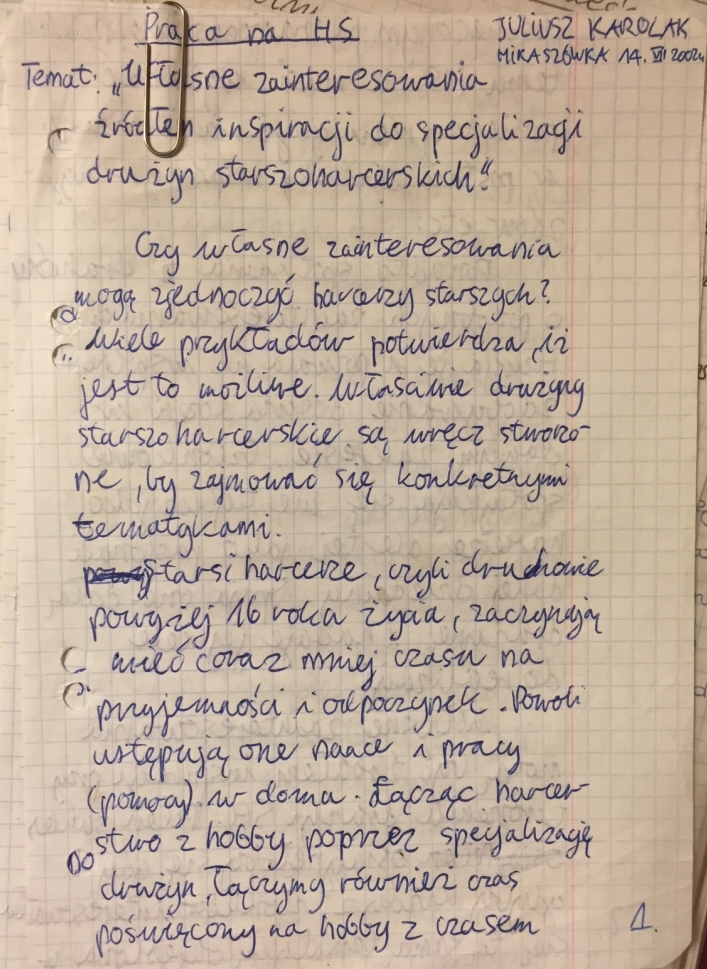 Praca na HS
JULIUSZ KAROLAK
MIKASZÓWKA 14. VII 2002r.
Temat: „Własne zainteresowania
źródłem inspiracji do specjalizacji
drużyn starszoharcerskich."
Czy własne zainteresowania
mogą zjednoczyć harcerzy starszych?
Wiele przykładów potwierdza, iż
jest to możliwe. Właściwie drużyny
starszoharcerskie są wręcz stworzo-
ne, by zajmować się konkretnymi
tematykami.
Starsi harcerze, czyli druhowie
powyżej 16 roku życia, zaczynają
mieć coraz mniej czasu na
przyjemności i odpoczynek. Powoli
ustępują one nauce i pracy
(pomocy) w domu. Łącząc harcer-
stwo z hobby poprzez specjalizację
drużyn, łączymy również czas
poświęcony na hobby z czasem
1.